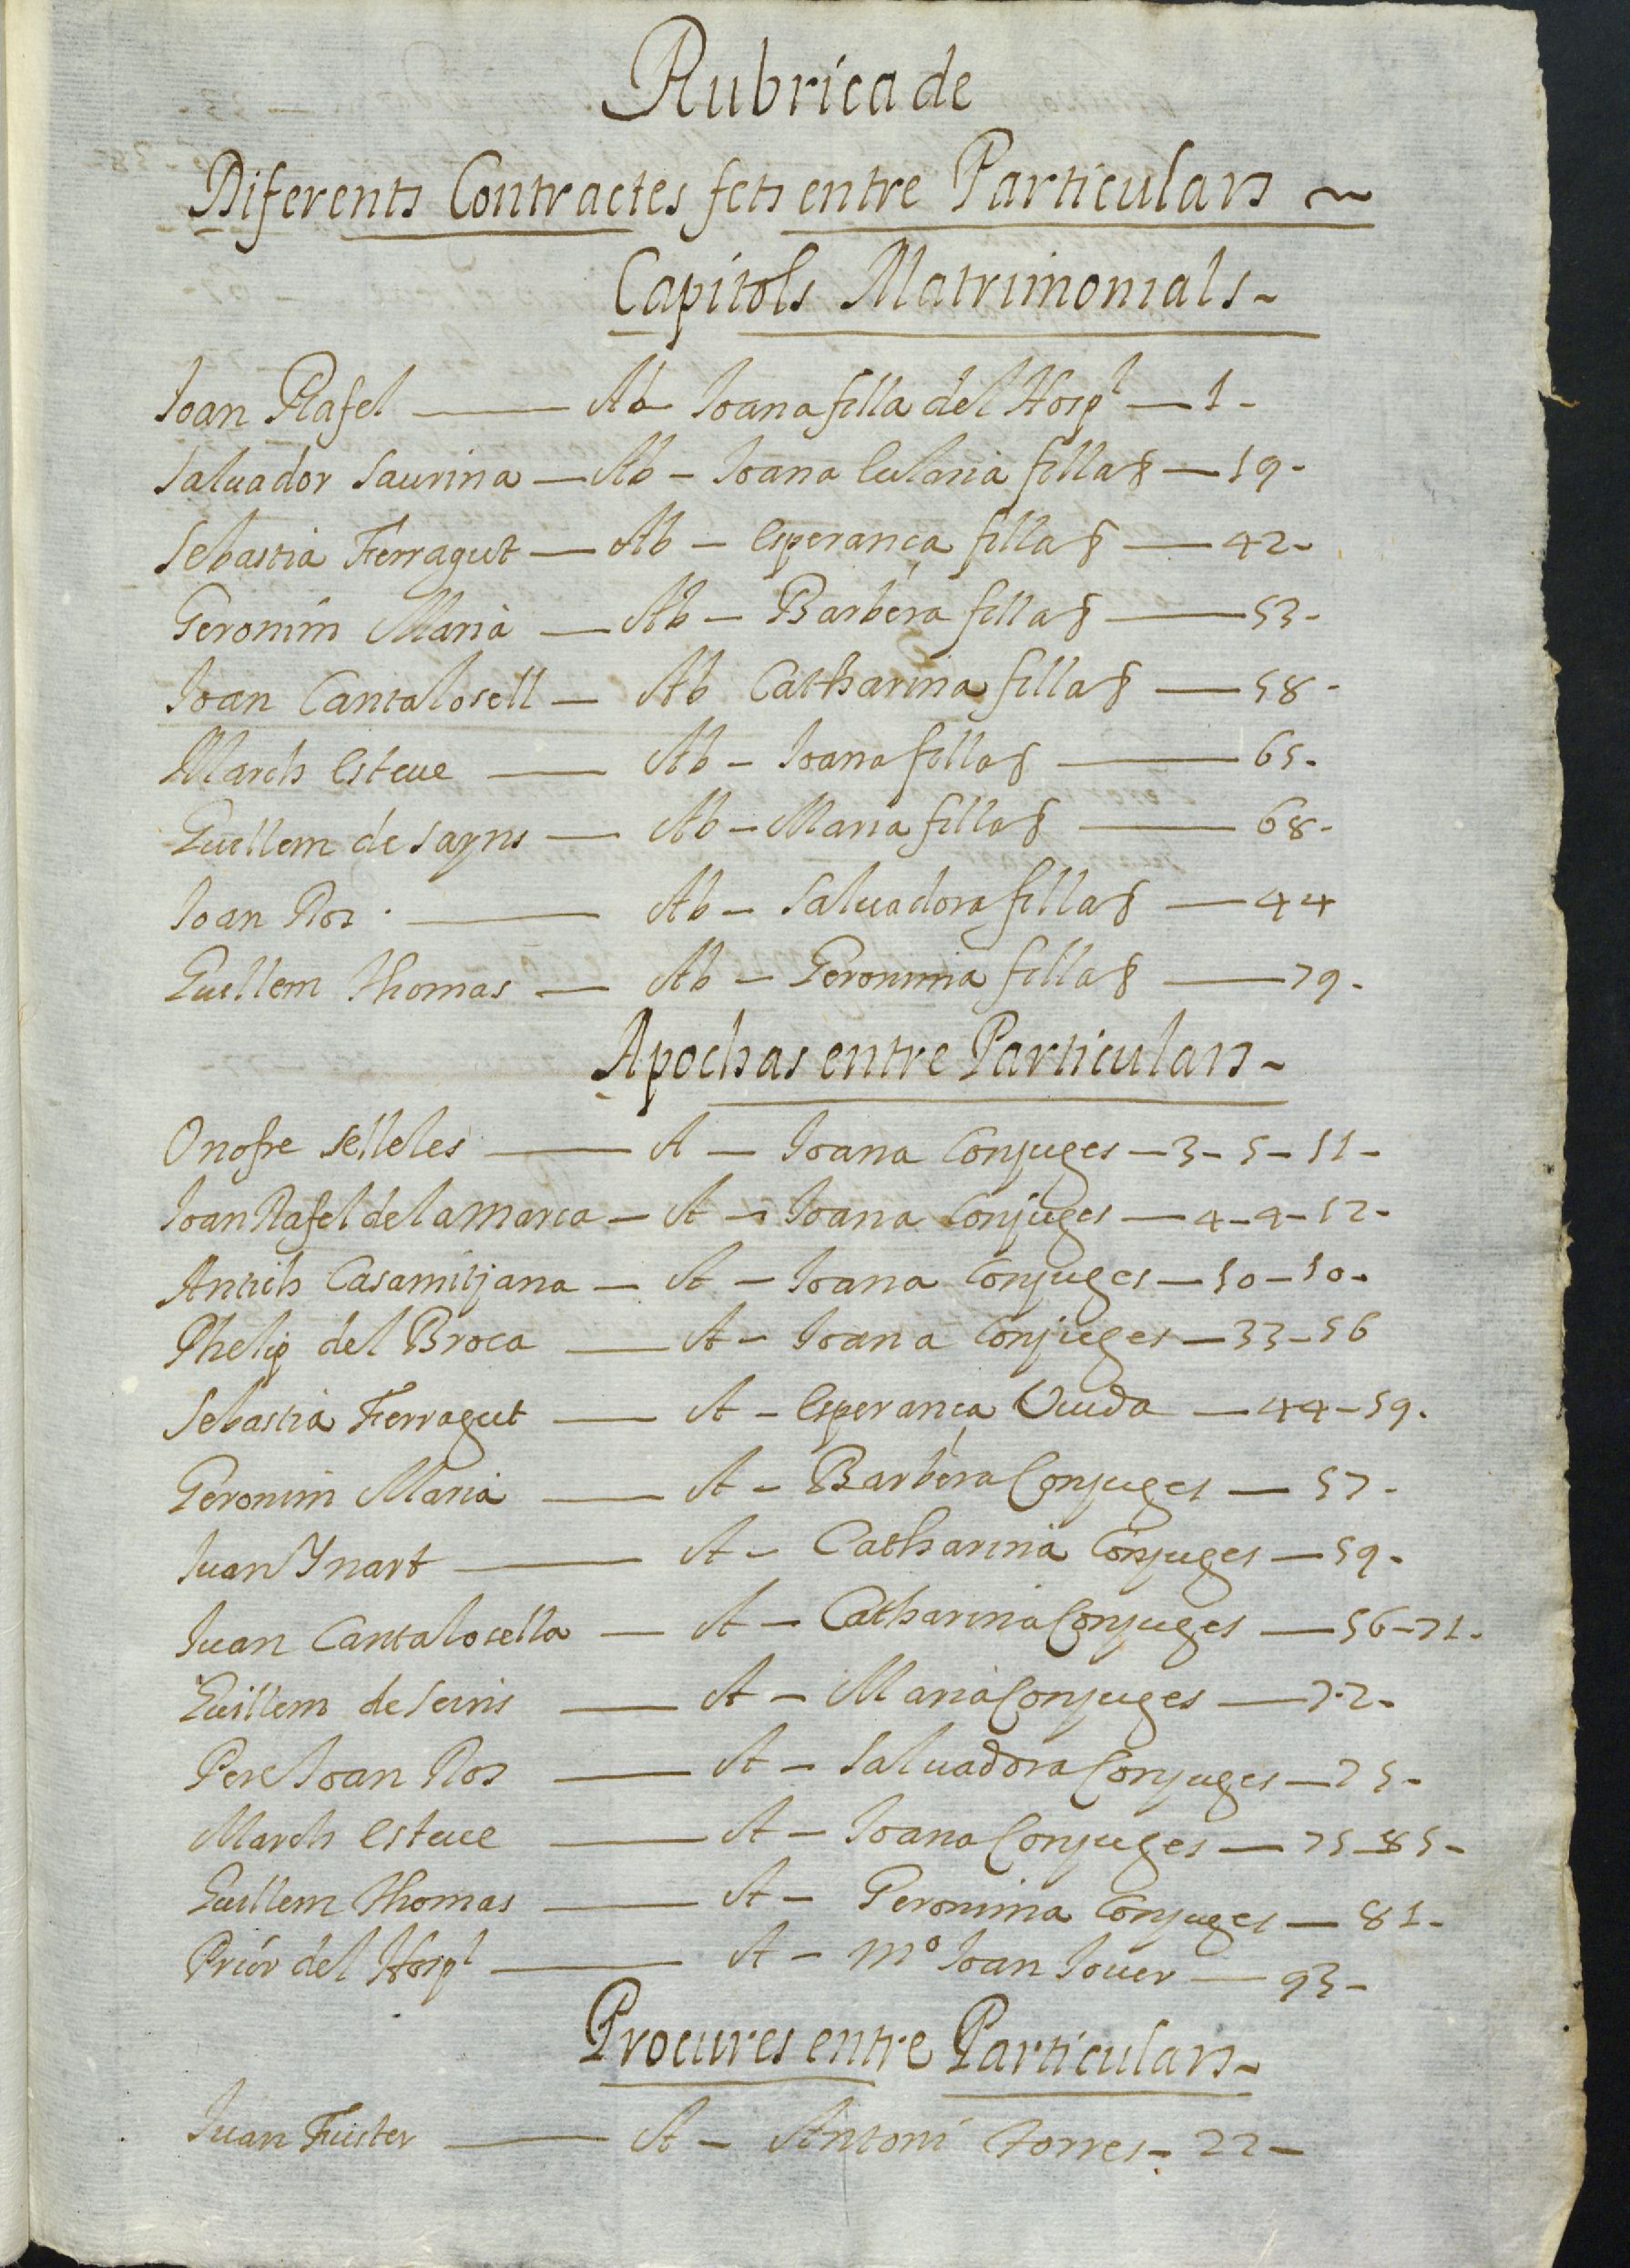 Rubrica de
Diferents Contractes fets entre Particulars ~
Capitols Matrimonials ~
Ioan Rafel — Ab Ioana filla del Hospl — 1 -
Saluador Saurina — Ab - Ioana Eularia filla d — 19 -
Sebastia Ferragut — Ab - Esperança filla d — 42 -
Geronim Maria — Ab - Barbera filla d — 53 -
Ioan Cantalosell — Ab Catharina filla d — 58 -
March Esteue — Ab - Ioana filla d — 65 -
Guillem de Sayns — Ab - Maria filla d — 68 -
Ioan Ros — Ab - Saluadora filla d — 44
Guillem Thomas — Ab - Geronima filla d — 79 -
Apochas entre Particulars ~
Onofre Selleles — A - Ioana Conjuges — 3 - 5 - 11 -
Ioan Rafel de la marca — A - Ioana Conjuges — 4 - 9 - 12 -
Antich Casamitjana — A - Ioana Conjuges — 10 - 10 -
Phelip del Broca — A - Ioana Conjuges — 33 - 56
Sebastia Ferragut — A - Esperança Viuda — 44 - 59 -
Geronim Maria — A - Barbera Conjuges — 57 -
Iuan Ynart — A - Catharina Conjuges — 59 -
Iuan Cantalosella — A - Catharina Conjuges — 56 - 71 -
Guillem de Seins — A - Maria Conjuges — 72 -
Pere Ioan Ros — A - Saluadora Conjuges — 75 -
March Esteue — A - Ioana Conjuges — 75 - 85 -
Guillem Thomas — A - Geronima Conjuges — 81 -
Prior del Hospl — A - Mo Ioan Iouer — 93 -
Procures entre Particulars ~
Iuan Fuster — A - Antoni Torres - 22 -